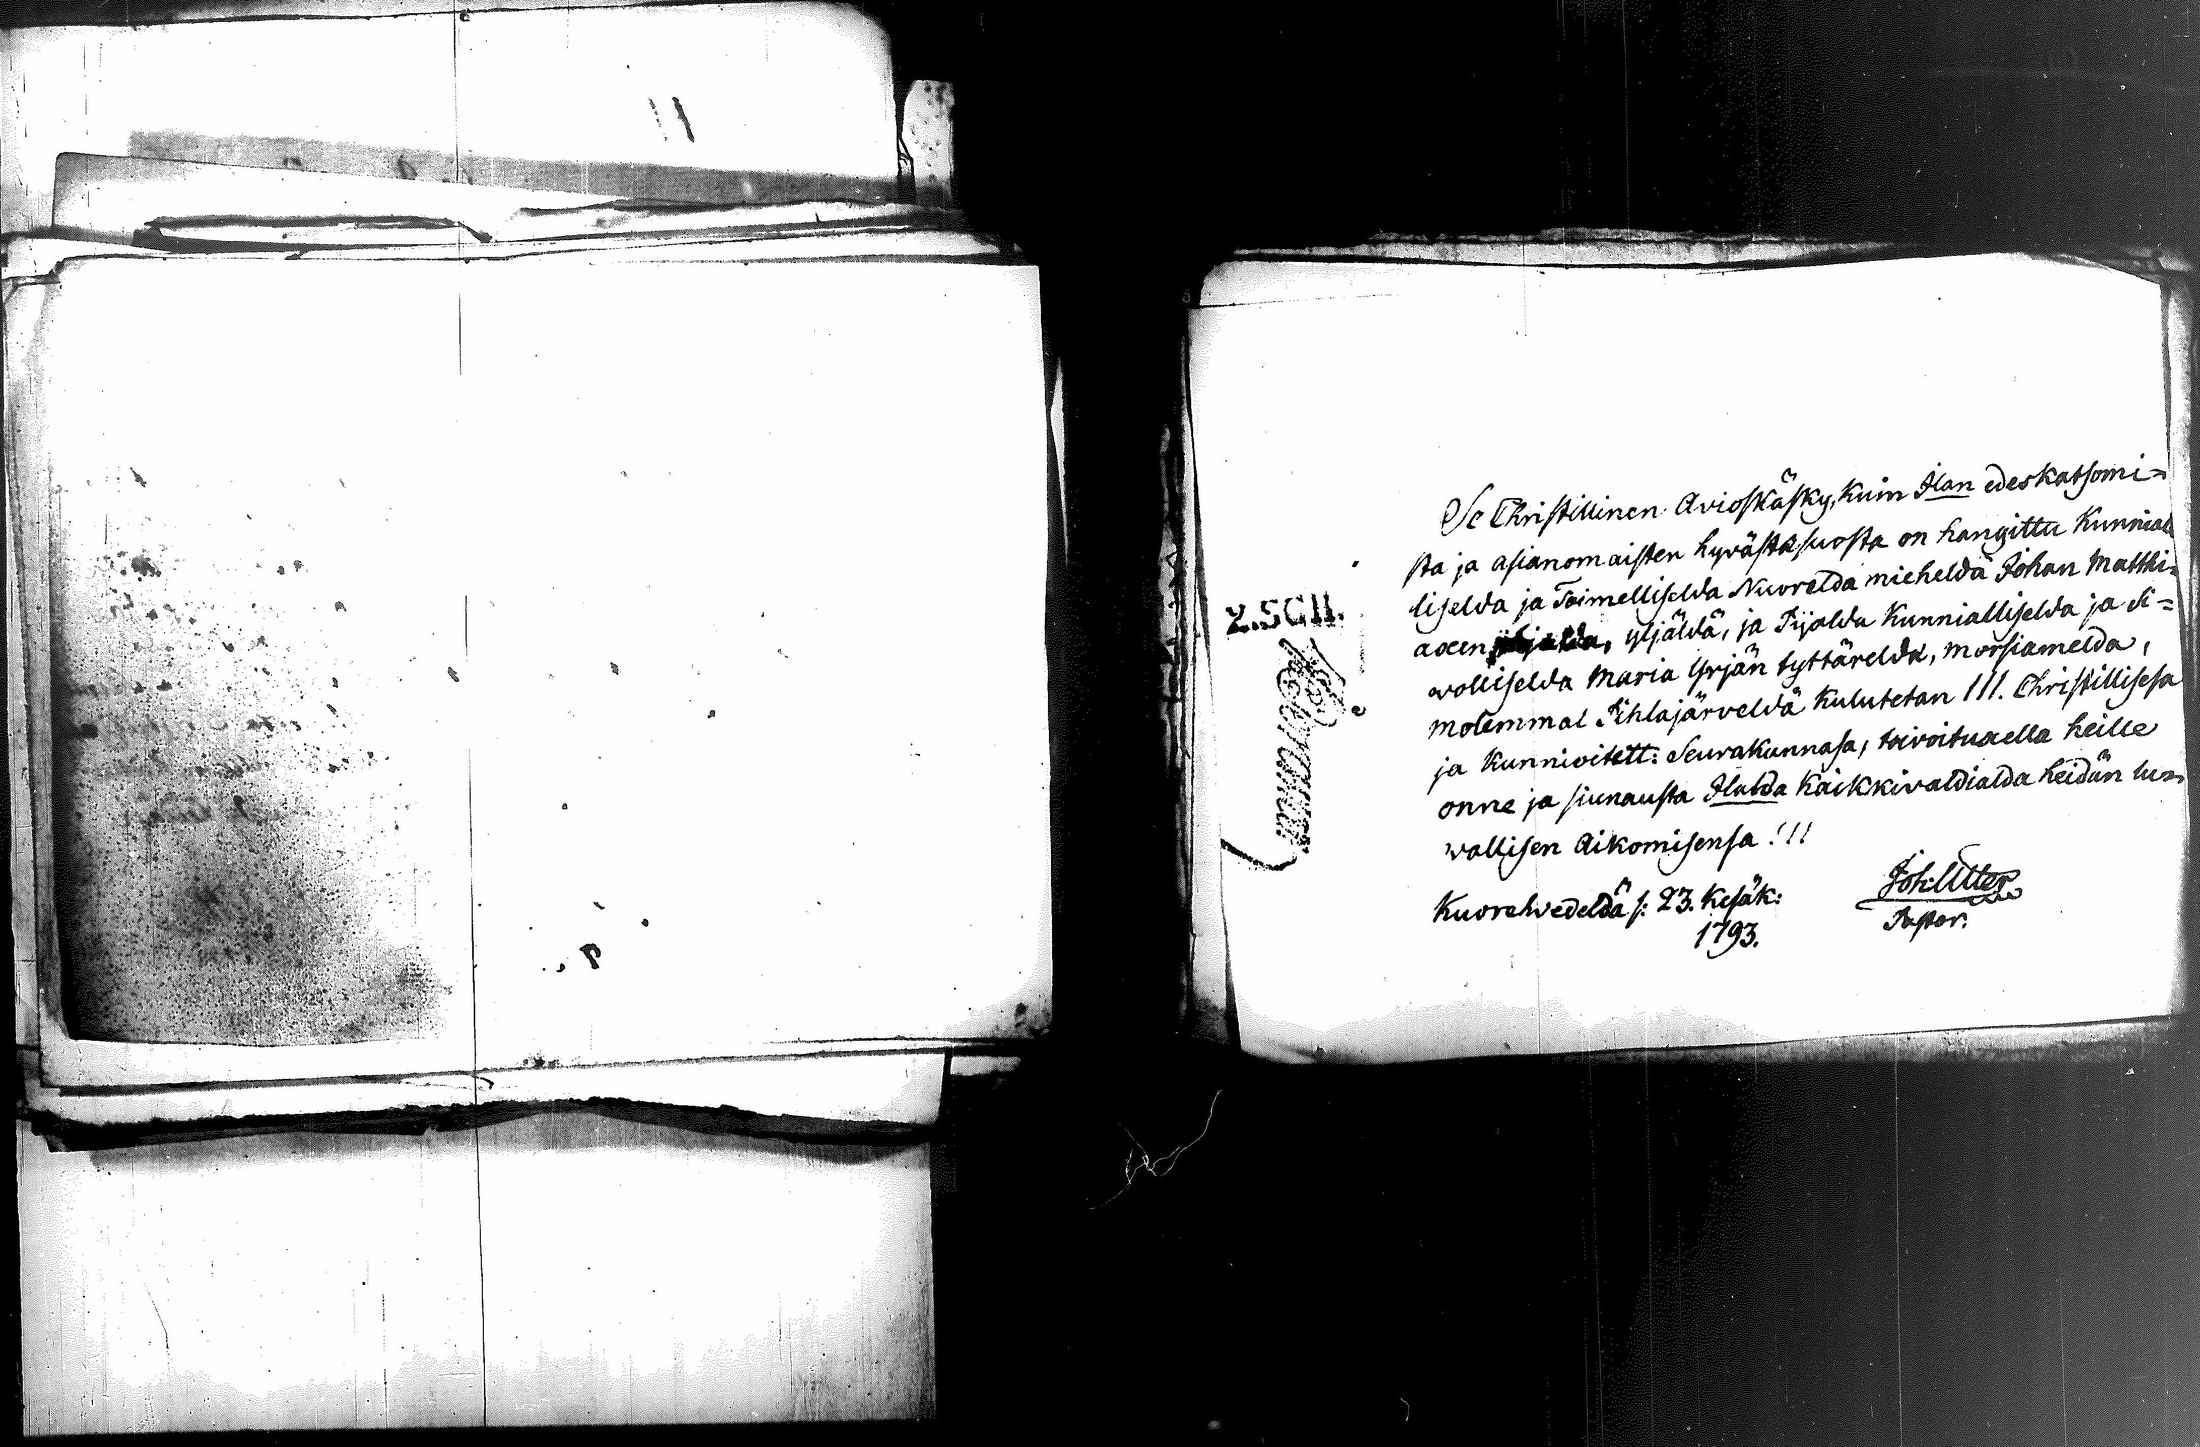 Se Christillinen Avioskäsky, kuin Ilan edeskatsomi=
sta ja asianomaisten hyvästä suosta on hangittu Kunnial
liselda ja Toimelliselda Nuorelda miehelda Johan Matthi=
axen yljäldä, ja Pijalda Kunnialliselda ja Si=
wolliselda Maria Yrjän tyttärelda, morsiamelda,
molemmat Pihlajärveldä Kulutetan III. Christillisesa
ja Kunnioitett: Seurakunnasa, toivoituxella heille
onne ja siunausta Ilulda Kaikkivaldialda heidän lu=
wallisen Aikomisensa!!!
Kuorehwedeldä s: 23. Kesäk:
1793.
Joh: Utter
Pastor.